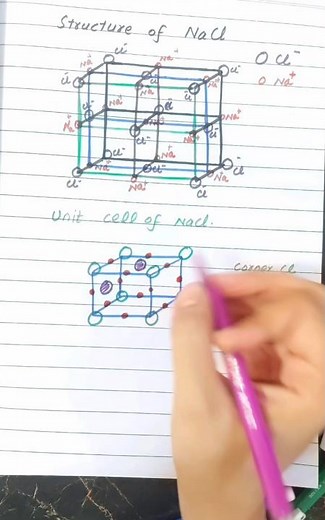 Structure of NaCl
O Cl⁻
o Na⁺
Cl⁻ Na⁺ Cl⁻
Cl⁻ Na⁺ Cl⁻ Na⁺
Na⁺ Cl⁻ Na⁺
Na⁺ Cl⁻ Na⁺ Cl⁻
Cl⁻ Na⁺ Cl⁻
Cl⁻ Na⁺ Cl⁻ Na
Unit cell of NaCl.
corner Cl